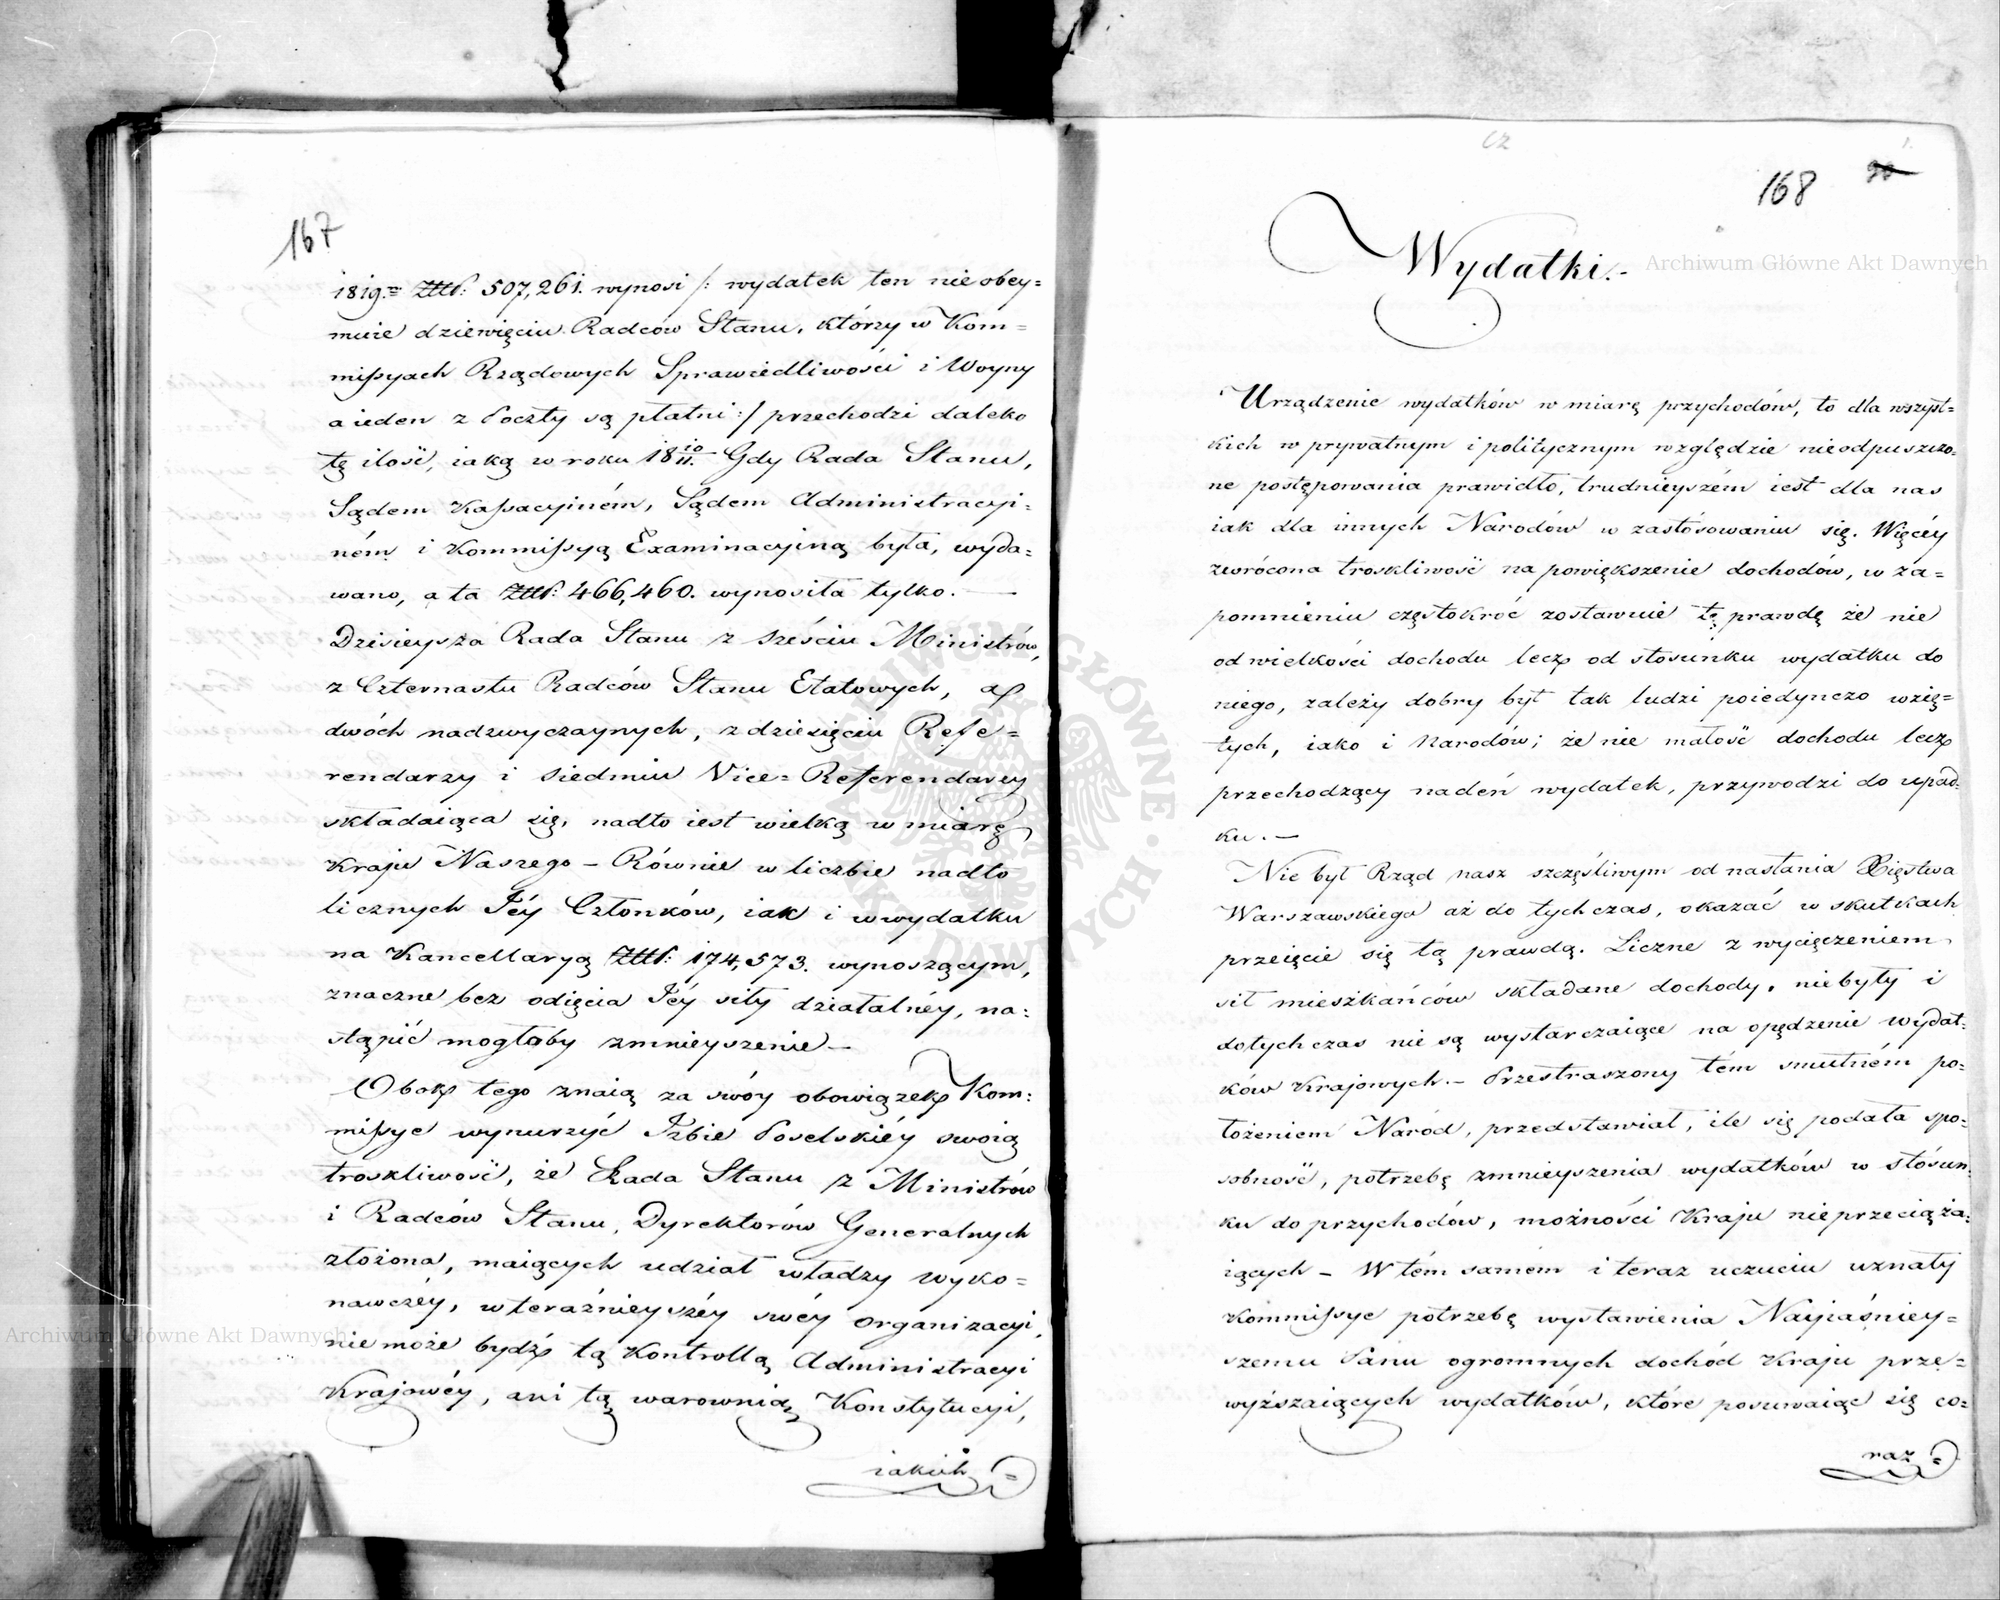 167
1819. Złtp: 507,261. wynosi /: wydatek ten nie obey=
muie dziewięciu Radców Stanu, którzy w Kom=
mißyach Rządowych Sprawiedliwości i Woyny
a ieden z Poczty są płatni :/ przechodzi daleko
tę ilość, iaką w roku 18 10/11. Gdy Rada Stanu,
Sądem Kaßacyiném, Sądem Administracyi=
ném i Kommißyą Examinacyiną była, wyda=
wano, a ta Złtp: 466,460. wynosiła tylko. —
Dzisieysza Rada Stanu z sześciu Ministrów,
z Czternastu Radców Stanu Etatowych, a
dwóch nadzwyczaynych, z dziesięciu Refe=
rendarzy i siedmiu Vice=Referendarzy
składaiąca się, nadto iest wielką w miarę
Kraju Naszego – Równie w liczbie nadto
licznych Jéy Członków, iak i w wydatku
na Kancellaryą Złtp: 174,573. wynoszącym,
znaczne bez odięcia Jéy siły działalnéy, na=
stąpić mogłoby zmnieyszenie –
Obok tego znaią za swóy obowiązek Kom=
mißye wynurzyć Izbie Poselskiéy swoią
troskliwość, że Rada Stanu z Ministrów
i Radców Stanu, Dyrektorów Generalnych
złożona, maiących udział władzy wyko=
nawczéy, w teraźnieyszéy swéy organizacyi,
nie może bydź tą Kontrollą Administracyi
Krajowéy, ani tą warownią Konstytucyi,
iakich
168
Wydatki.-
Urządzenie wydatków w miarę przychodów, to dla wszyst=
kich w prywatnym i politycznym względzie nieodpuszczo=
ne postępowania prawidło, trudnieyszém iest dla nas
iak dla innych Narodów w zastósowaniu się. Więcéy
zwrócona troskliwość na powiększenie dochodów, w za=
pomnieniu częstokroć zostawuie tę prawdę że nie
od wielkości dochodu lecz od stosunku wydatku do
niego, zależy dobry byt tak ludzi poiedynczo wzię=
tych, iako i Narodów; że nie małość dochodu lecz
przechodzący nadeń wydatek, przywodzi do upad=
ku. —
Nie był Rząd nasz szczęśliwym od nastania Xięstwa
Warszawskiego aż do tychczas, okazać w skutkach
przeięcie się tą prawdą. Liczne z wycięczeniem
sił mieszkańców składane dochody, nie były i
dotychczas nie są wystarczaiące na opędzenie wydat=
ków Krajowych. – Przestraszony tém smutném po=
łożeniem Naród, przedstawiał, ile się podała spo=
sobność, potrzebę zmnieyszenia wydatków w stósun=
ku do przychodów, możności Kraju nieprzeciąża=
iących – W tém samém i teraz uczuciu uznały
Kommißye potrzebę wystawienia Nayiaśniey=
szemu Panu ogromnych dochód Kraju prze=
wyższaiących wydatków, które posuwaiąc się co=
raz
Archiwum Główne Akt Dawnych
Archiwum Główne Akt Dawnych
ARCHIWUM GŁÓWNE AKT DAWNYCH